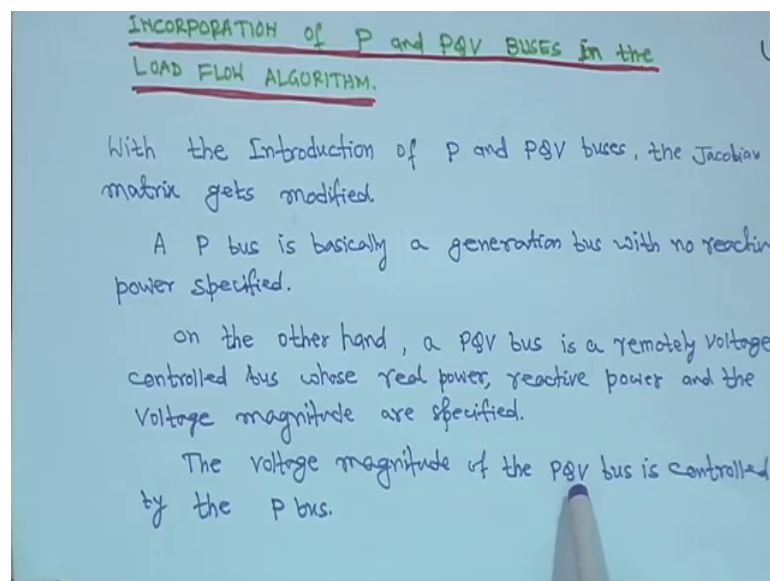 INCORPORATION of P and PQV BUSES in the
LOAD FLOW ALGORITHM.
With the Introduction of P and PQV buses, the Jacobian
matrix gets modified
A P bus is basically a generation bus with no
power specified.
on the other hand, a PQV bus is a remotely voltage
controlled bus whose real power, reactive power and the
Voltage magnitude are specified.
The voltage magnitude of the PQV bus is controlled
by the P bus.